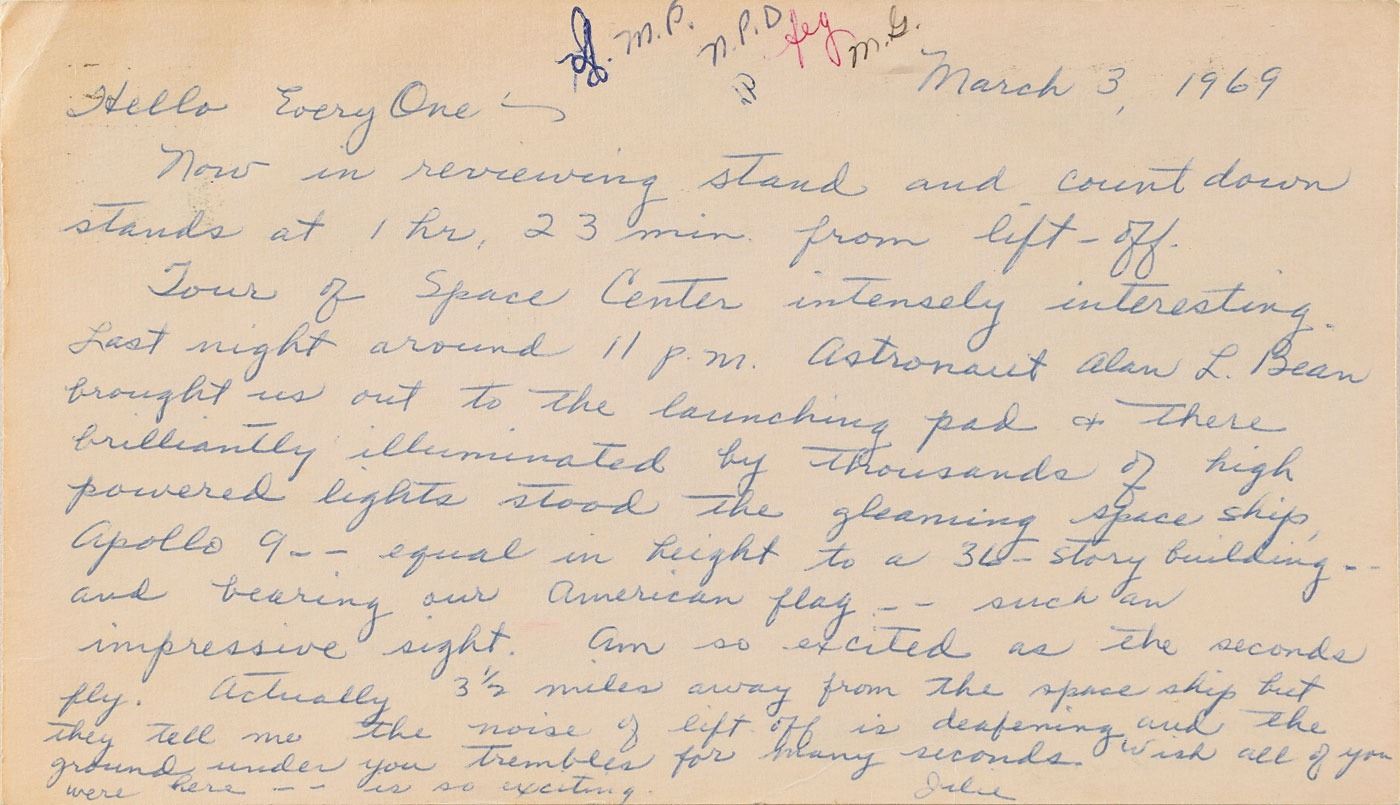 M.P. N.P.D M.G.
March 3, 1969
Hello Every One —
Now in reviewing stand and count down
stands at 1 hr, 23 min. from lift-off.
Tour of Space Center intensely interesting.
Last night around 11 p.m. Astronaut Alan L. Bean
brought us out to the launching pad & there
brilliantly illuminated by thousands of high
powered lights stood the gleaming space ship,
Apollo 9 -- equal in height to a 36-story building --
and bearing our American flag -- such an
impressive sight. Am so excited as the seconds
fly. Actually 3 1/2 miles away from the space ship but
they tell me the noise of lift off is deafening and the
ground under you trembles for many seconds. Wish all of you
were here -- is so exciting.